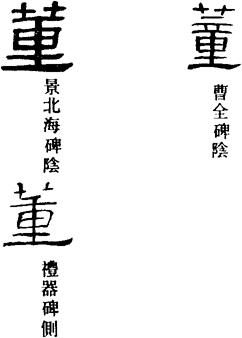 董
景北海碑陰
蕫
曹全碑陰
董
禮器碑側